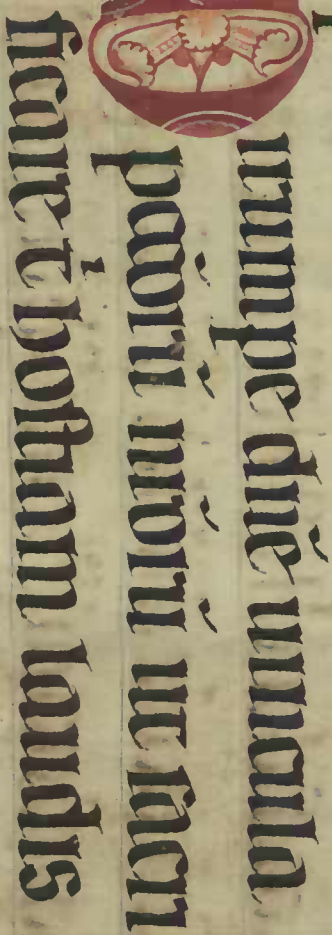 irumpe dn̄e uincula
pc̄cōrū nr̄orū ut sacri
ficare t̄ hostiam laudis